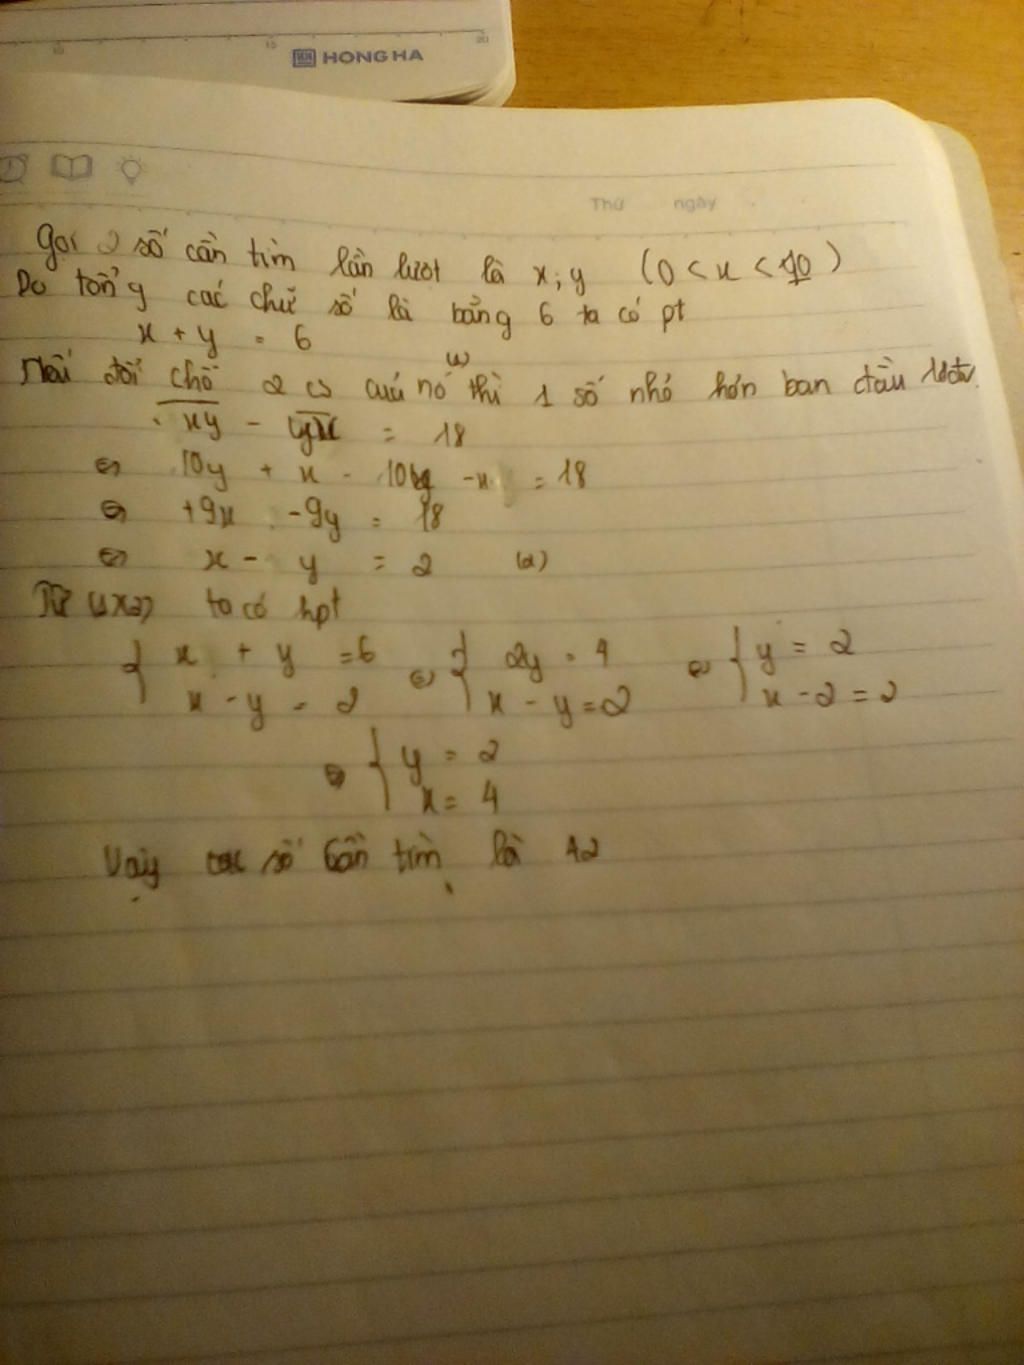 10 15 20
HONG HA
Thứ ngày
Gọi 2 số cần tìm lần lượt là x; y (0 < x < 10)
Do tổng các chữ số là bằng 6 ta có pt
x + y = 6 (1)
Nếu đổi chỗ 2 cs của nó thì 1 số nhỏ hơn ban đầu 18đv.
xy - yx = 18
⇔ 10y + x - 10y - x = 18
⇔ +9x - 9y = 18
⇔ x - y = 2 (2)
Từ (1)(2) ta có hpt
{ x + y = 6 ⇔ { 2y = 4 ⇔ { y = 2
x - y = 2 x - y = 2 x - 2 = 2
⇔ { y = 2
x = 4
Vậy số cần tìm là 42